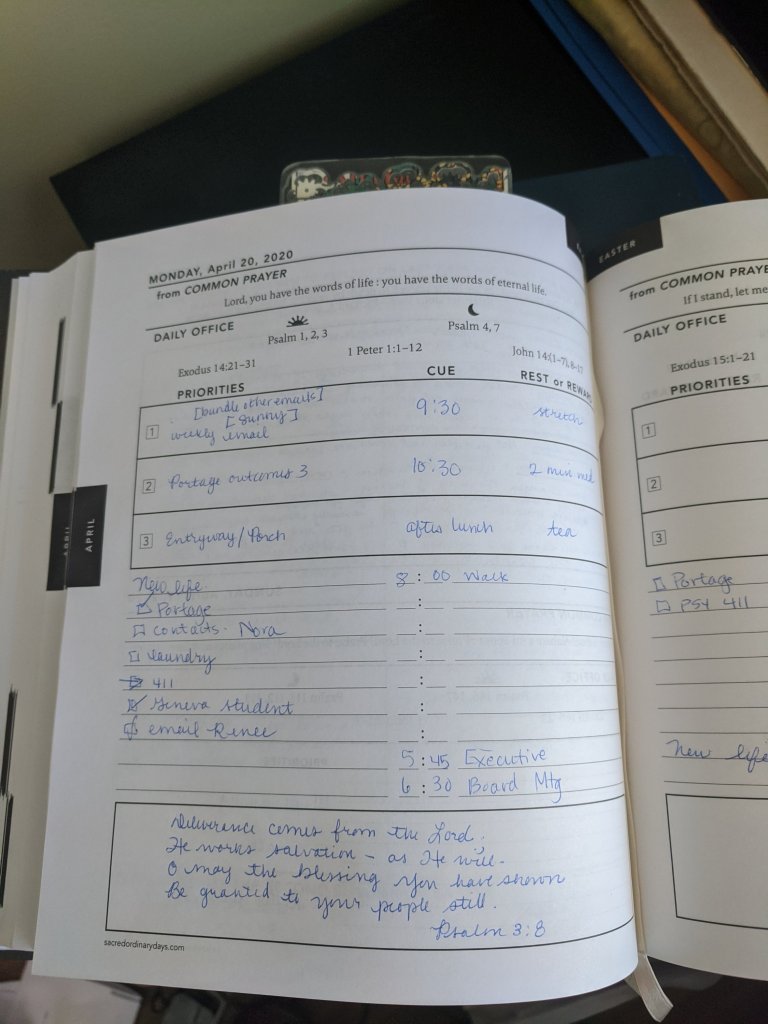 MONDAY, April 20, 2020
from COMMON PRAYER
Lord, you have the words of life : you have the words of eternal life.
DAILY OFFICE
Psalm 1, 2, 3
Psalm 4, 7
Exodus 14:21–31
1 Peter 1:1–12
John 14:(1–7), 8–17
PRIORITIES CUE REST or REWARD
[bundle other emails]
[Sunny]
1 weekly email 9:30 stretch
2 Portage outcomes 3 10:30 2 min med
3 Entryway/Porch after lunch tea
New life 8 : 00 Walk
Portage :
contacts - Nora :
laundry :
411 :
Geneva student :
email Renee :
5 : 45 Executive
6 : 30 Board Mtg
Deliverance comes from the Lord.
He works salvation – as He will.
O may the blessing You have shown
Be granted to your people still.
Psalm 3:8
sacredordinarydays.com
APRIL
APRIL
EASTER
from COMMON PRAYE
If I stand, let me
DAILY OFFICE
Exodus 15:1–21
PRIORITIES
1
2
3
Portage
PSY 411
New life